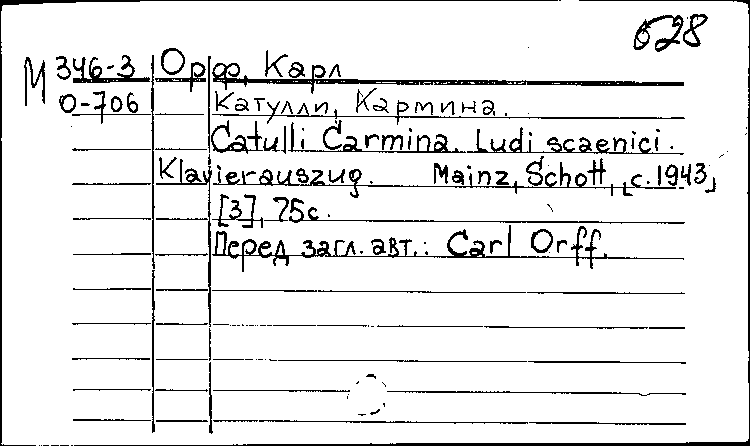 628
М 346-3 Орф, Карл
О-706 Катулли, Кармина.
Catulli Carmina. Ludi scaenici.
Klavierauszug. Mainz, Schott, [c. 1943]
[3], 75с.
Перед загл. авт.: Carl Orff.